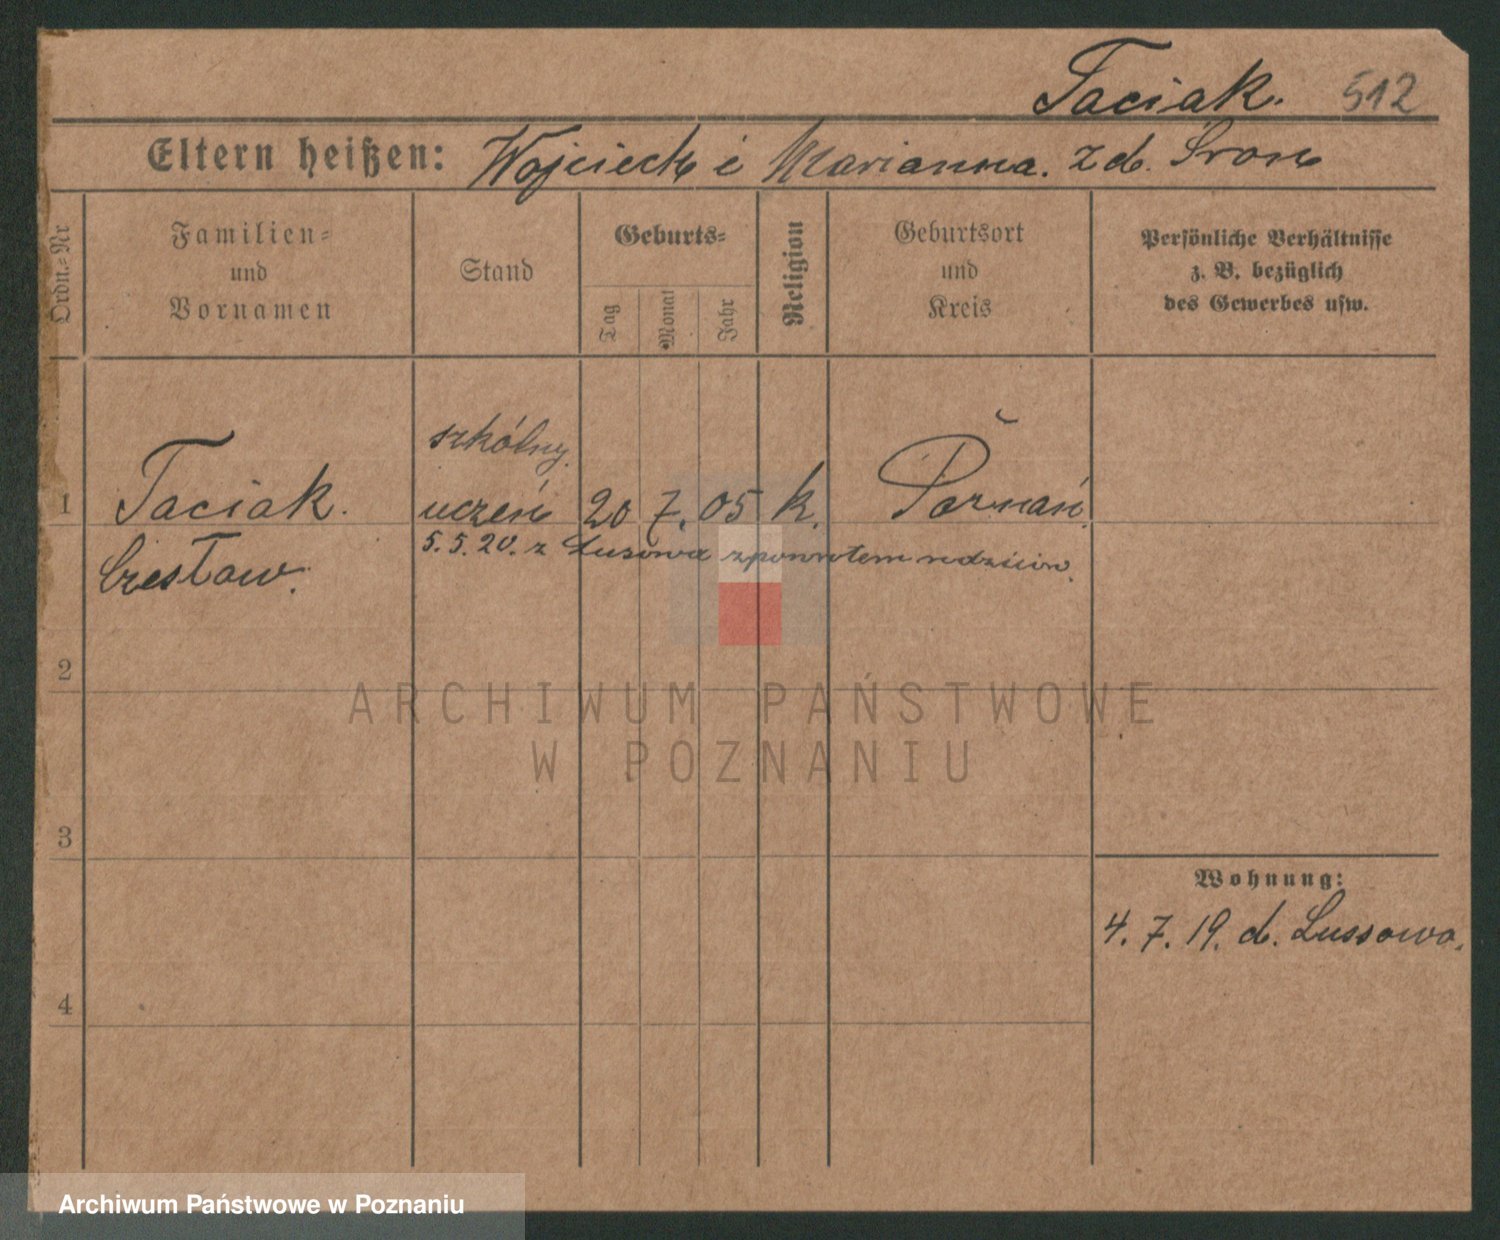 Taciak. 512
Eltern heißen: Wojciech i Marianna. z d. Sron
Ordn.-Nr
Familien-
und
Vornamen
Stand
Geburts-
Tag
Monat
Jahr
Religion
Geburtsort
und
Kreis
Persönliche Verhältnisse
z. B. bezüglich
des Gewerbes usw.
szkólny.
1 Taciak. uczeń 20 7. 05 k. Poznań.
5. 5. 20. z Lusowa zpowrotem rodziców.
Czesław.
2
ARCHIWUM PAŃSTWOWE
W POZNANIU
3
Wohnung:
4. 7. 19. d. Lussowo.
4
Archiwum Państwowe w Poznaniu